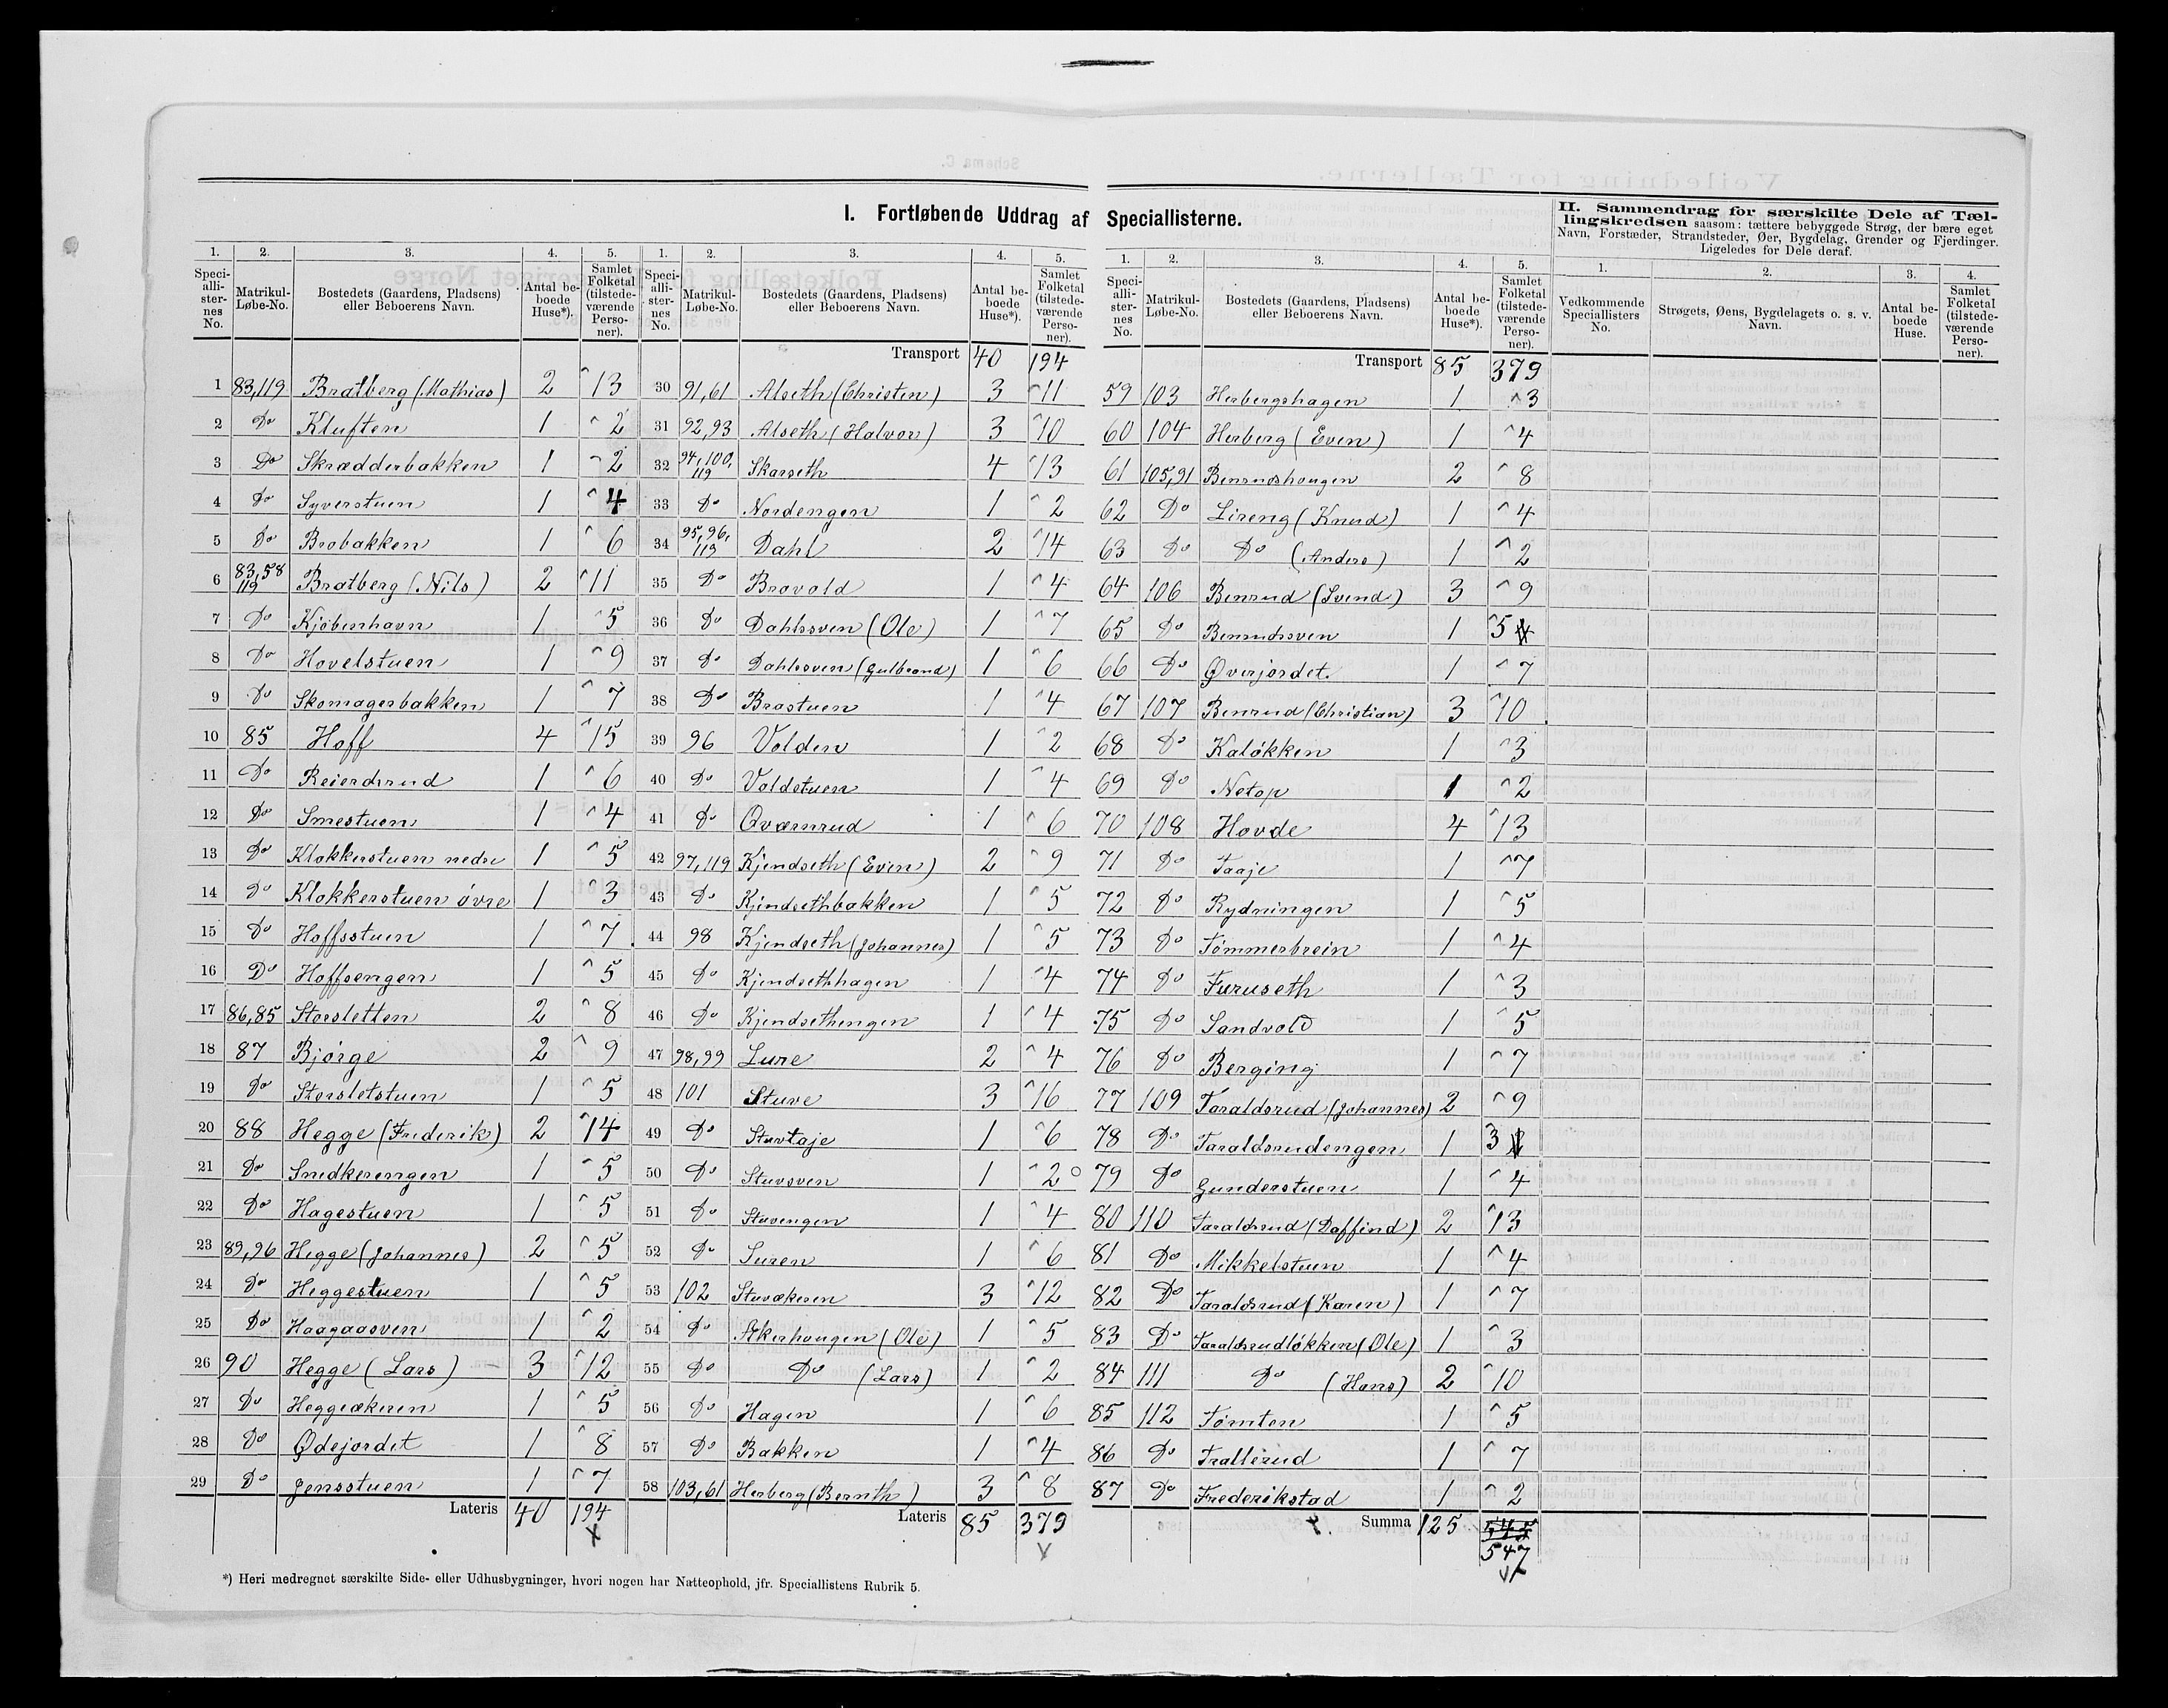 I. Fortløbende Uddrag af Speciallisterne.
II. Sammendrag for særskilte Dele af Tæl-
lingskredsen saasom: tættere bebyggede Strøg, der bære eget
Navn, Forstæder, Strandsteder, Øer, Bygdelag, Grender og Fjerdinger.
Ligeledes for Dele deraf.
1. 2. 3. 4. 5. 1. 2. 3. 4. 5. 1. 2. 3. 4. 5. 1. 2. 3. 4.
Speci-alli-ster-nes No. Matrikul-Løbe-No. Bostedets (Gaardens, Pladsens) eller Beboerens Navn. Antal be-boede Huse*). Samlet Folketal (tilstede-værende Perso-ner).
Speci-alli-ster-nes No. Matrikul-Løbe-No. Bostedets (Gaardens, Pladsens) eller Beboerens Navn. Antal be-boede Huse*). Samlet Folketal (tilstede-værende Perso-ner).
Speci-alli-ster-nes No. Matrikul-Løbe-No. Bostedets (Gaardens, Pladsens) eller Beboerens Navn. Antal be-boede Huse*). Samlet Folketal (tilstede-værende Perso-ner).
Vedkommende Speciallisters No. Strøgets, Øens, Bygdelagets o. s. v. Navn. Antal be-boede Huse. Samlet Folketal (tilstede-værende Perso-ner).
1 83,119 Bratberg (Mathias) 2 13
2 Do Kluften 1 2
3 Do Skrædderbakken 1 2
4 Do Syverstuen 1 4
5 Do Brobakken 1 6
6 83,58 119 Bratberg (Nils) 2 11
7 Do Kjøbenhavn 1 5
8 Do Hovelstuen 1 9
9 Do Skomagerbakken 1 7
10 85 Hoff 4 15
11 Do Reierdsrud 1 6
12 Do Smestuen 1 4
13 Do Klokkerstuen nedre 1 5
14 Do Klokkerstuen øvre 1 3
15 Do Hoffsstuen 1 7
16 Do Hoffsengen 1 5
17 86,85 Storsletten 2 8
18 87 Bjørge 2 9
19 Do Storsletstuen 1 5
20 88 Hegge (Frederik) 2 14
21 Do Snedkerengen 1 5
22 Do Hagestuen 1 5
23 89,96 Hegge (Johannes) 2 5
24 Do Heggestuen 1 5
25 Do Haagaasven 1 2
26 90 Hegge (Lars) 3 12
27 Do Heggeækeren 1 5
28 Do Ødejordet 1 8
29 Do Jensstuen 1 7
Lateris 40 194
Transport 40 194
30 91,61 Alseth (Christen) 3 11
31 92,93 Alseth (Halvor) 3 10
32 94,100, 119 Skarseth 4 13
33 Do Nordengen 1 2
34 95,96, 119 Dahl 2 14
35 Do Brovold 1 4
36 Do Dahlssven (Ole) 1 7
37 Do Dahlssven (Gulbrand) 1 6
38 Do Brostuen 1 4
39 96 Volden 1 2
40 Do Voldstuen 1 4
41 Do Qværnrud 1 6
42 97,119 Kjendseth (Even) 2 9
43 Do Kjendsethbakken 1 5
44 98 Kjendseth (Johannes) 1 5
45 Do Kjendsethhagen 1 4
46 Do Kjendsethengen 1 4
47 98,99 Lure 2 4
48 101 Stuve 3 16
49 Do Stuvtaje 1 6
50 Do Stuvsven 1 2
51 Do Stuvengen 1 4
52 Do Suren 1 6
53 102 Stuvækeren 3 12
54 Do Akerhougen (Ole) 1 5
55 Do Do (Lars) 1 2
56 Do Hagen 1 6
57 Do Bakken 1 4
58 103,61 Herberg (Bernth) 3 8
Lateris 85 379
Transport 85 379
59 103 Herbergshagen 1 3
60 104 Herberg (Even) 1 4
61 105,91 Benrudshougen 2 8
62 Do Lireng (Knud) 1 4
63 Do Do (Anders) 1 2
64 106 Benrud (Svend) 3 9
65 Do Benrudssven 1 5
66 Do Øverjordet. 1 7
67 107 Benrud (Christian) 3 10
68 Do Kaløkken 1 3
69 Do Netop 1 2
70 108 Hovde 4 13
71 Do Taaje 1 7
72 Do Rydningen 1 5
73 Do Tømmerbrein 1 4
74 Do Furuseth 1 3
75 Do Sandvold 1 5
76 Do Berging 1 7
77 109 Taraldsrud (Johannes) 2 9
78 Do Taraldsrudengen 1 3
79 Do Gunderstuen 1 4
80 110 Taraldsrud (Daffind) 2 13
81 Do Mikkelstuen 1 4
82 Do Taraldsrud (Karen) 1 7
83 Do Taraldsrudløkken (Ole) 1 3
84 111 Do (Hans) 2 10
85 112 Tømten 1 5
86 Do Trallerud 1 7
87 Do Frederikstad 1 2
Summa 125 545
547
*) Heri medregnet særskilte Side- eller Udhusbygninger, hvori nogen har Natteophold, jfr. Speciallistens Rubrik 5.